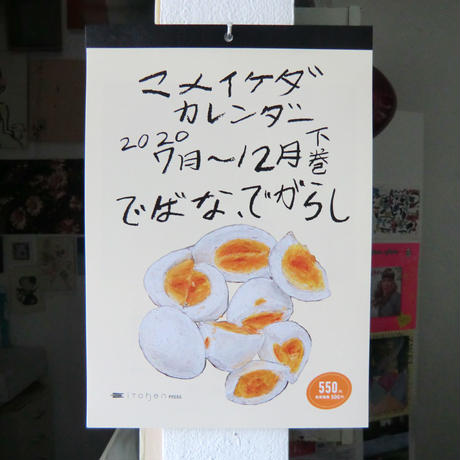 マメイケダ
カレンダー
2020
7月〜12月
下巻
でばな、でがらし
itohen PRESS
550円